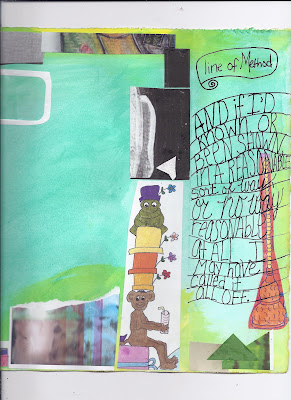 line of Method
AND if I'D
KNOWN OR
BEEN SHOWN
IN A REASONABLE
sort of way
or no way
reasonable
at All I
may have
called it
all off.